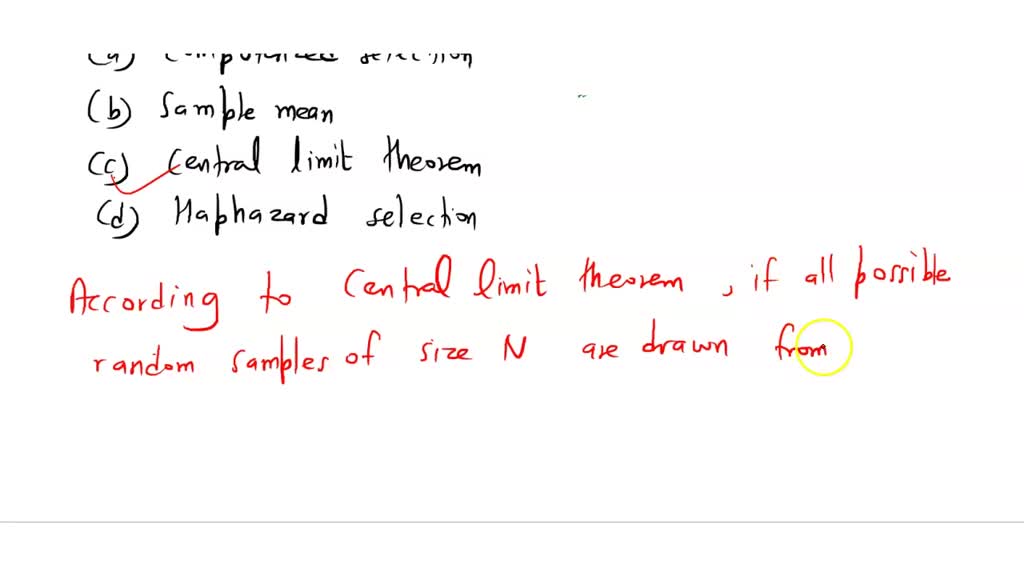 (a) Computerized selection
(b) Sample mean
(c) Central limit theorem
(d) Haphazard selection
According to Central limit theorem , if all possible
random samples of size N are drawn from